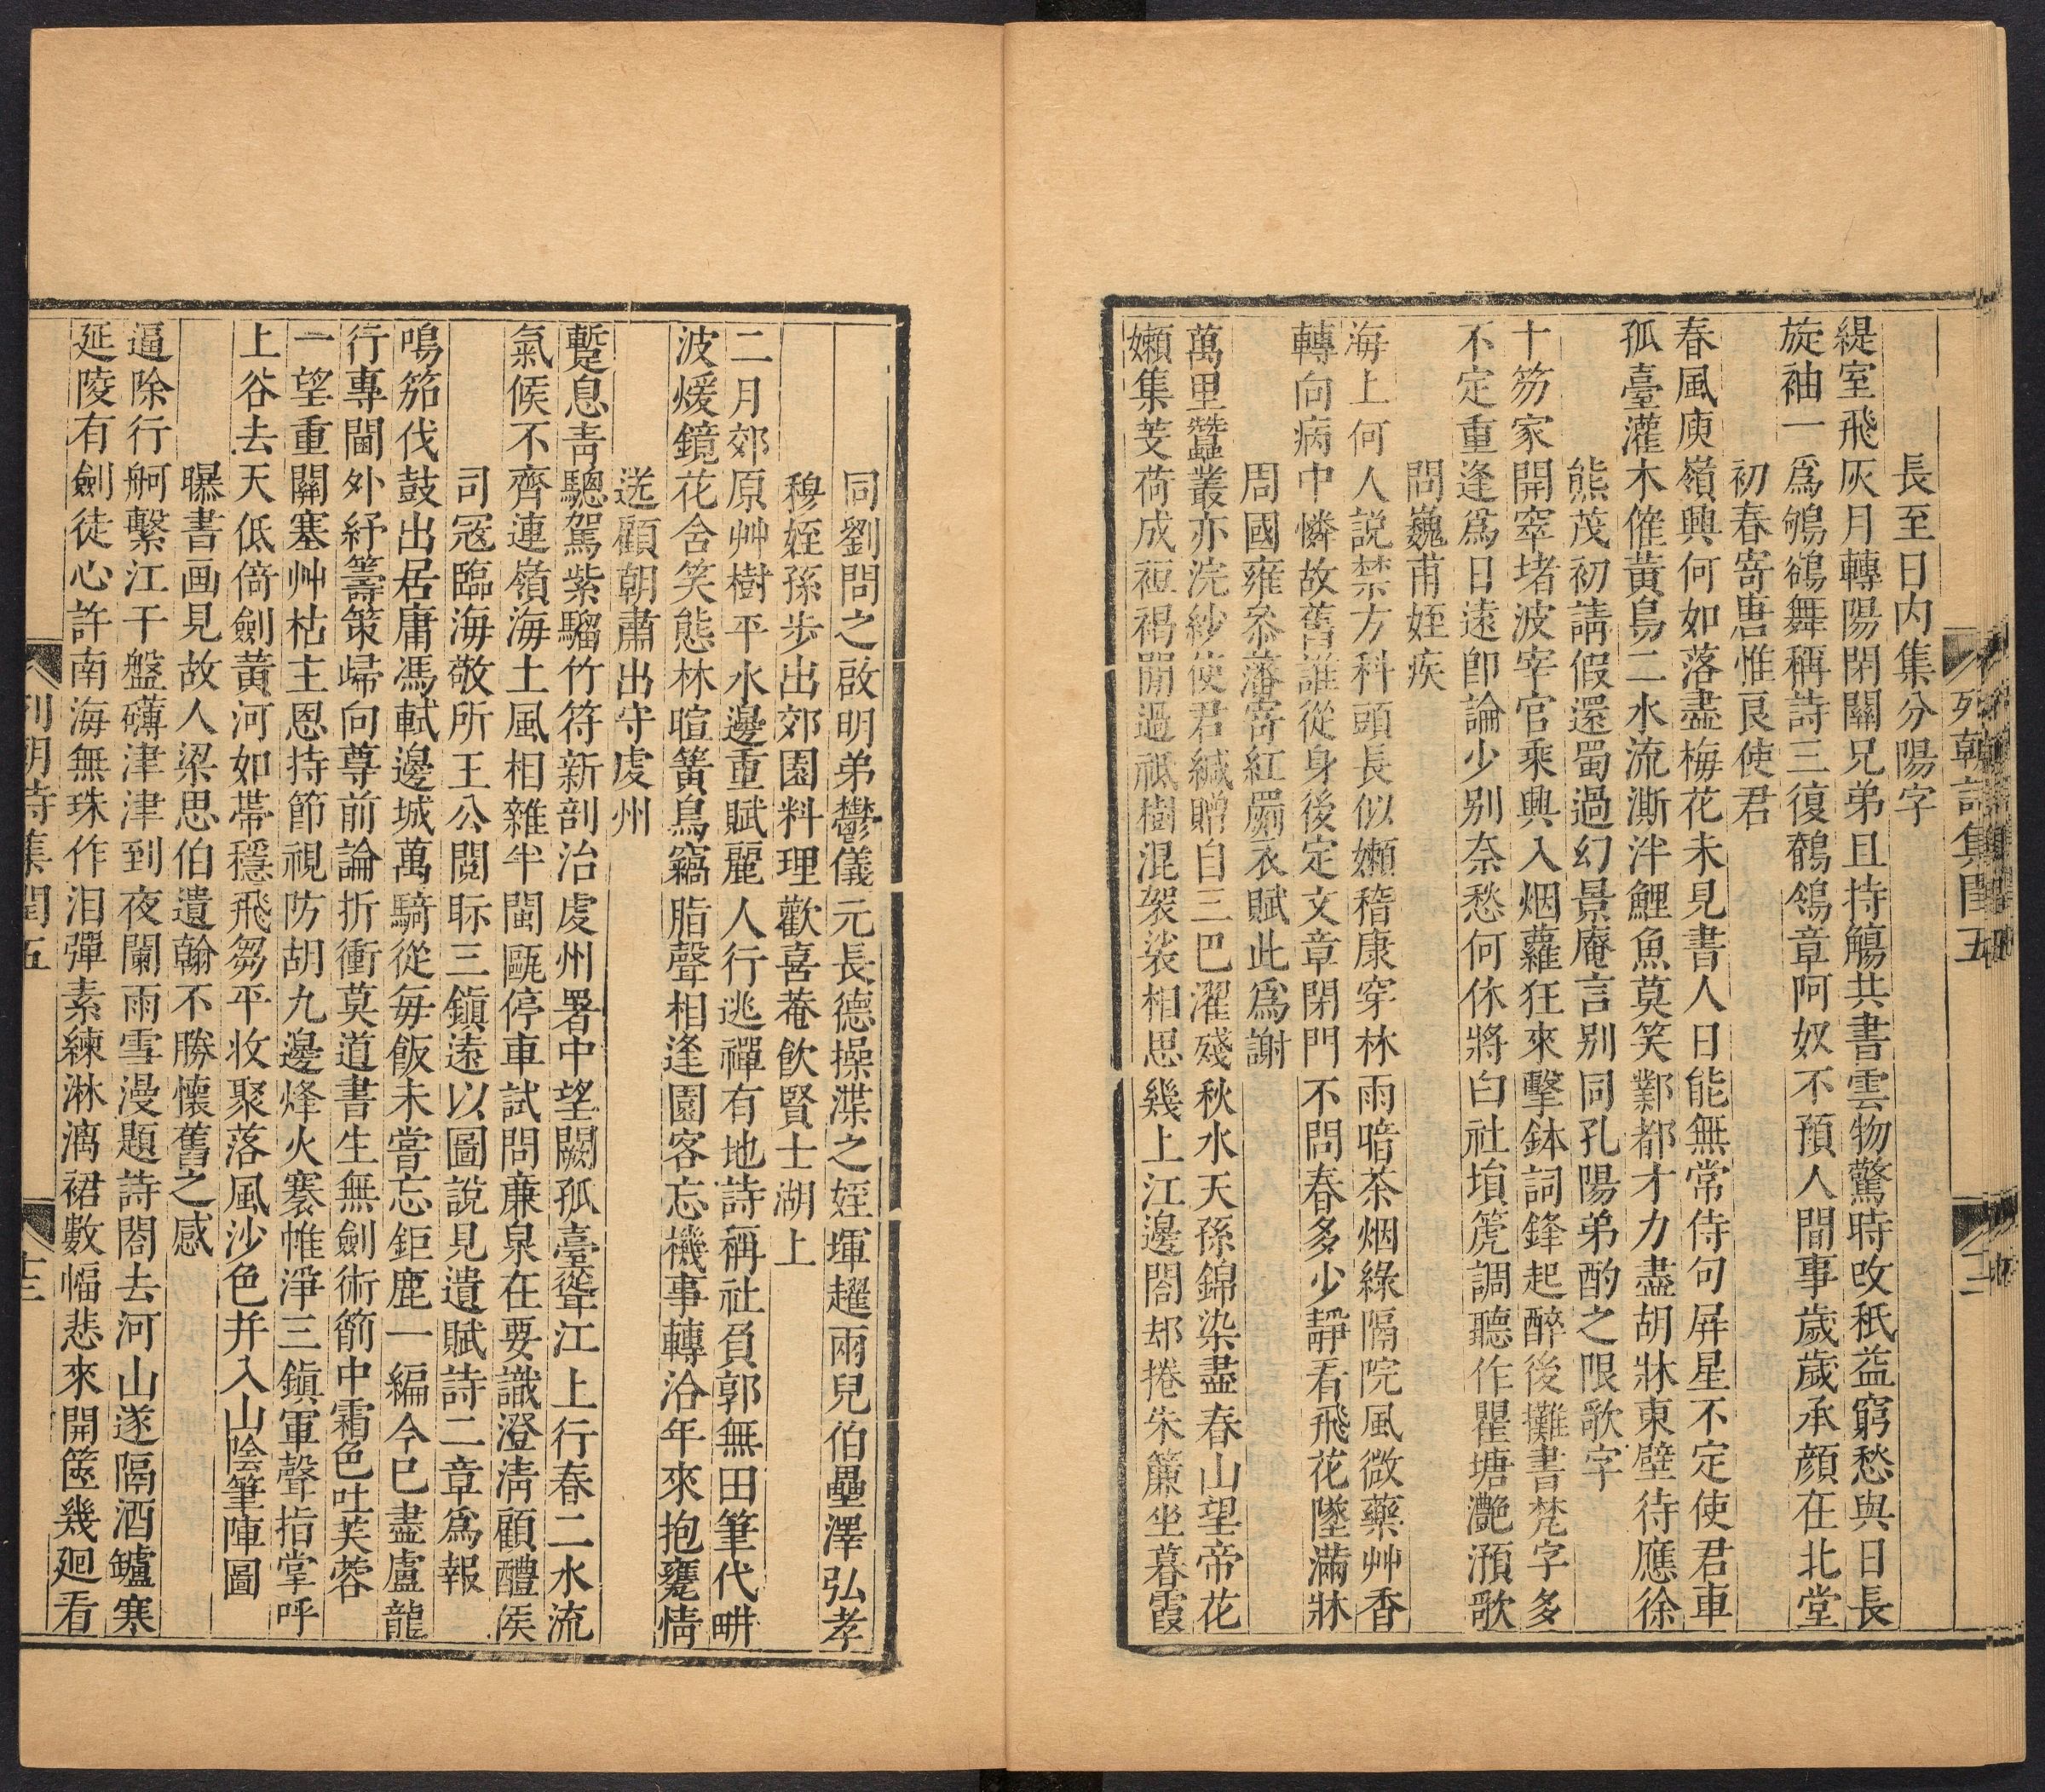 列朝詩集閏五
長至日內集分陽字
緹室飛灰月轉陽閉關兄弟且持觴共書雲物驚時改秖益窮愁與日長
旋袖一爲鴝鵒舞稱詩三復鶺鴒章阿奴不預人間事歲歲承顔在北堂
初春寄唐惟良使君
春風庾嶺興何如落盡梅花未見書人日能無常侍句屏星不定使君車
孤臺灌木催黃鳥二水流澌泮鯉魚莫笑鄴都才力盡胡牀東壁待應徐
熊茂初請假還蜀過幻景庵言别同孔陽弟酌之限歌字
十笏家開窣堵波宰官乘興入烟蘿狂來擊鉢詞鋒起醉後攤書梵字多
不定重逢爲日遠卽論少别奈愁何休將白社塤箎調聽作瞿塘灔澦歌
問巍甫姪疾
海上何人說禁方科頭長似嬾稽康穿林雨暗茶烟綠隔院風微藥艸香
轉向病中憐故舊誰從身後定文章閉門不問春多少靜看飛花墜滿牀
周國雍叅藩寄紅罽衣賦此爲謝
萬里蠶叢亦浣紗使君緘贈自三巴濯殘秋水天孫錦染盡春山望帝花
嬾集芰荷成裋褐閒過祇樹混袈裟相思幾上江邊閣却捲朱簾坐暮霞
同劉問之啟明弟鬱儀元長德操渫之姪㻶趯兩兒伯壘澤弘孝
穆姪孫步出郊園料理歡喜菴飲賢士湖上
二月郊原艸樹平水邊重賦麗人行逃禪有地詩稱社負郭無田筆代畊
波煖鏡花含笑態林暄簧鳥竊脂聲相逢園客忘機事轉洽年來抱甕情
送顧朝肅出守處州
蹔息靑驄駕紫騮竹符新剖治處州署中望闕孤臺聳江上行春二水流
氣候不齊連嶺海土風相雜半閩甌停車試問亷泉在要識澄淸顧醴侯
司寇臨海敬所王公閱眎三鎭遠以圖說見遺賦詩二章爲報
鳴笳伐鼓出居庸馮軾邊城萬騎從每飯未嘗忘鉅鹿一編今已盡盧龍
行專閫外紓籌策歸向尊前論折衝莫道書生無劍術箭中霜色吐芙蓉
一望重關塞艸枯主恩持節視防胡九邊烽火褰帷淨三鎭軍聲指掌呼
上谷去天低倚劍黃河如帶穩飛芻平收聚落風沙色并入山陰筆陣圖
曝書画見故人梁思伯遺翰不勝懷舊之感
逼除行舸繫江干盤礴津津到夜闌雨雪漫題詩閣去河山遂隔酒鑪寒
延陵有劍徒心許南海無珠作泪彈素練淋漓裙數幅悲來開篋幾廻看
列朝詩集閏五
十三